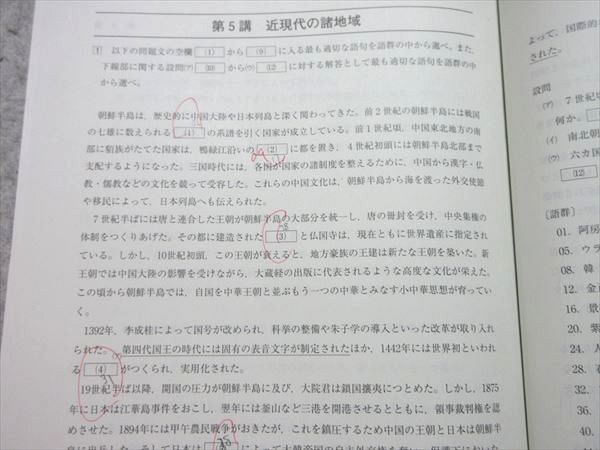 第5講　近現代の諸地域
1　以下の問題文の空欄 (1) から (9) に入る最も適切な語句を語群の中から選べ。また，
下線部に関する設問(ア) (10) から(ウ) (12) に対する解答として最も適切な語句を語群の中
から選べ。
朝鮮半島は，歴史的に中国大陸や日本列島と深く関わってきた。前2世紀の朝鮮半島には戦国
の七雄に数えられる (1) の系譜を引く国家が成立している。前1世紀頃，中国東北地方の南
部に貊族がたてた国家は，鴨緑江沿いの (2) に都を置き，4世紀初頭には朝鮮半島北部まで
支配するようになった。三国時代には，各国が国家の諸制度を整えるために，中国から漢字・仏
教・儒教などの文化を競って受容した。これらの中国文化は，朝鮮半島から海を渡った外交使節
や移民によって，日本列島へも伝えられた。
7世紀半ばには唐と連合した王朝が朝鮮半島の大部分を統一し，唐の冊封を受け，中央集権の
体制をつくりあげた。その都に建造された (3) と仏国寺は，現在ともに世界遺産に指定され
ている。しかし，10世紀初頭，この王朝が衰えると，地方豪族の王建は新たな王朝を築いた。新
王朝では中国大陸の影響を受けながら，大蔵経の出版に代表されるような高度な文化が栄えた。
この頃から朝鮮半島では，自国を中華王朝と並ぶもう一つの中華とみなす小中華思想が育ってい
く。
1392年，李成桂によって国号が改められ，科挙の整備や朱子学の導入といった改革が取り入れ
られた。第四代国王の時代には固有の表音文字が制定されたほか，1442年には世界初といわれ
る (4) がつくられ，実用化された。
19世紀半ば以降，開国の圧力が朝鮮半島に及び，大院君は鎖国攘夷につとめた。しかし，1875
年に日本は江華島事件をおこし，翌年には釜山など三港を開港させるとともに，領事裁判権を認
めさせた。1894年には甲午農民戦争がおきたが，これを鎮圧するため中国の王朝と日本は朝鮮半
よって，国際的
された。
設問
(ア)　7世紀
何か。
(イ)　南北朝
(ウ)　六カ国
(12)
〔語群〕
01. 阿房
05. ウラ
08. 韓
12. 金
16. 景
20.
24.
28.
32.
36.
40.